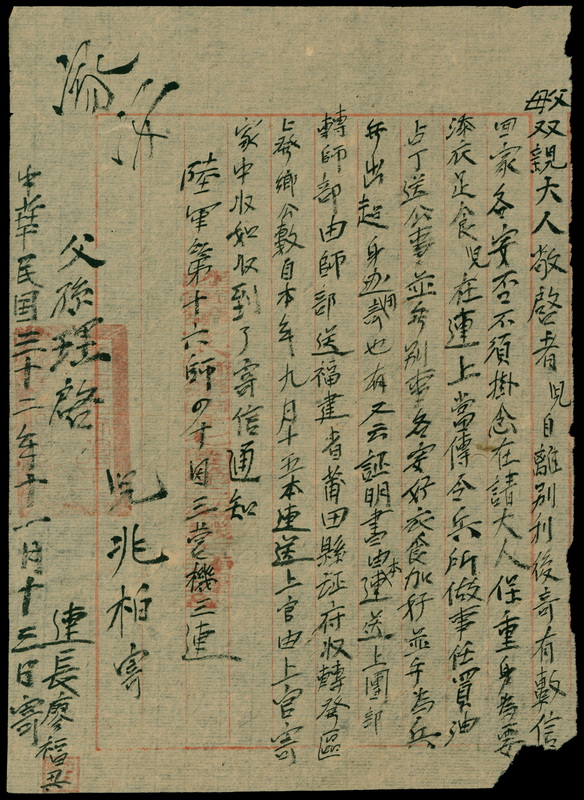 父母双親大人敬啓者兒自離別後寄有數信
回家各安否不須掛念在請大人保重身為要
添衣足食兒在連上當傳令兵所做事任買油
占丁送公事並无別事各安好衣食加好並千為兵
年出超身边调訪也有又云証明書由本連送上團部
轉師部由師部送福建省莆田縣証府收轉發區
上發鄉公數自本年九月十五本連送上官由上官寄
家中收如收到了寄信通知
陸軍第十六師四十团三营機三連
兒兆柏寄
父孫理啓
連長廖福丑
中華民国三十二年十一月十三日寄